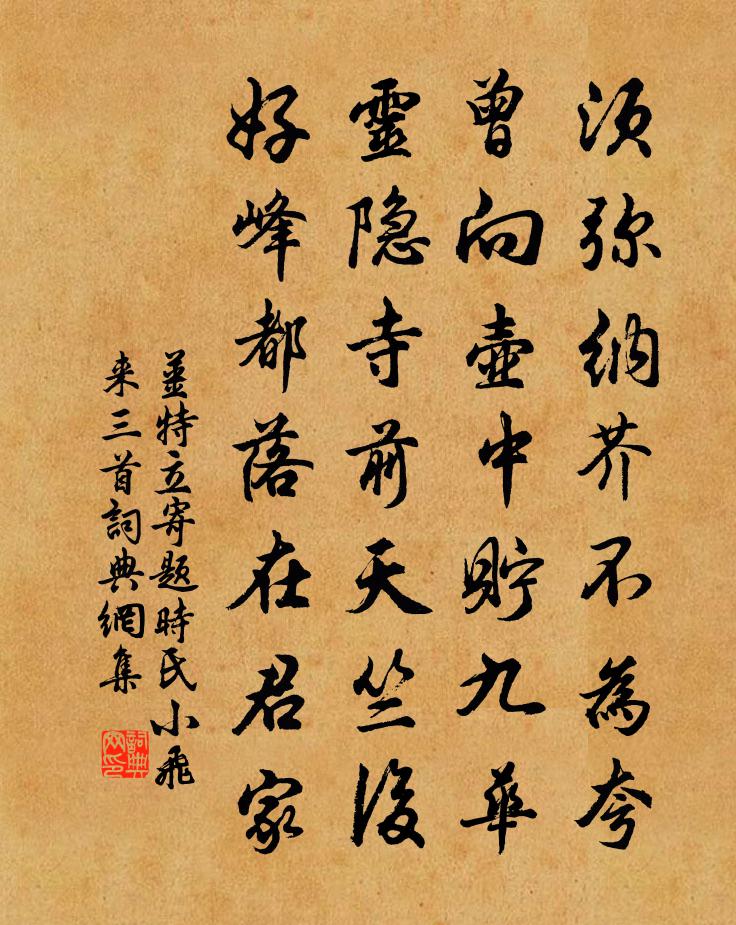 须弥纳芥不為夸
曾向壺中貯九華
靈隐寺前天竺後
好峰都落在君家
薑特立寄题時氏小飛
来三首詞典網集
詞典网印